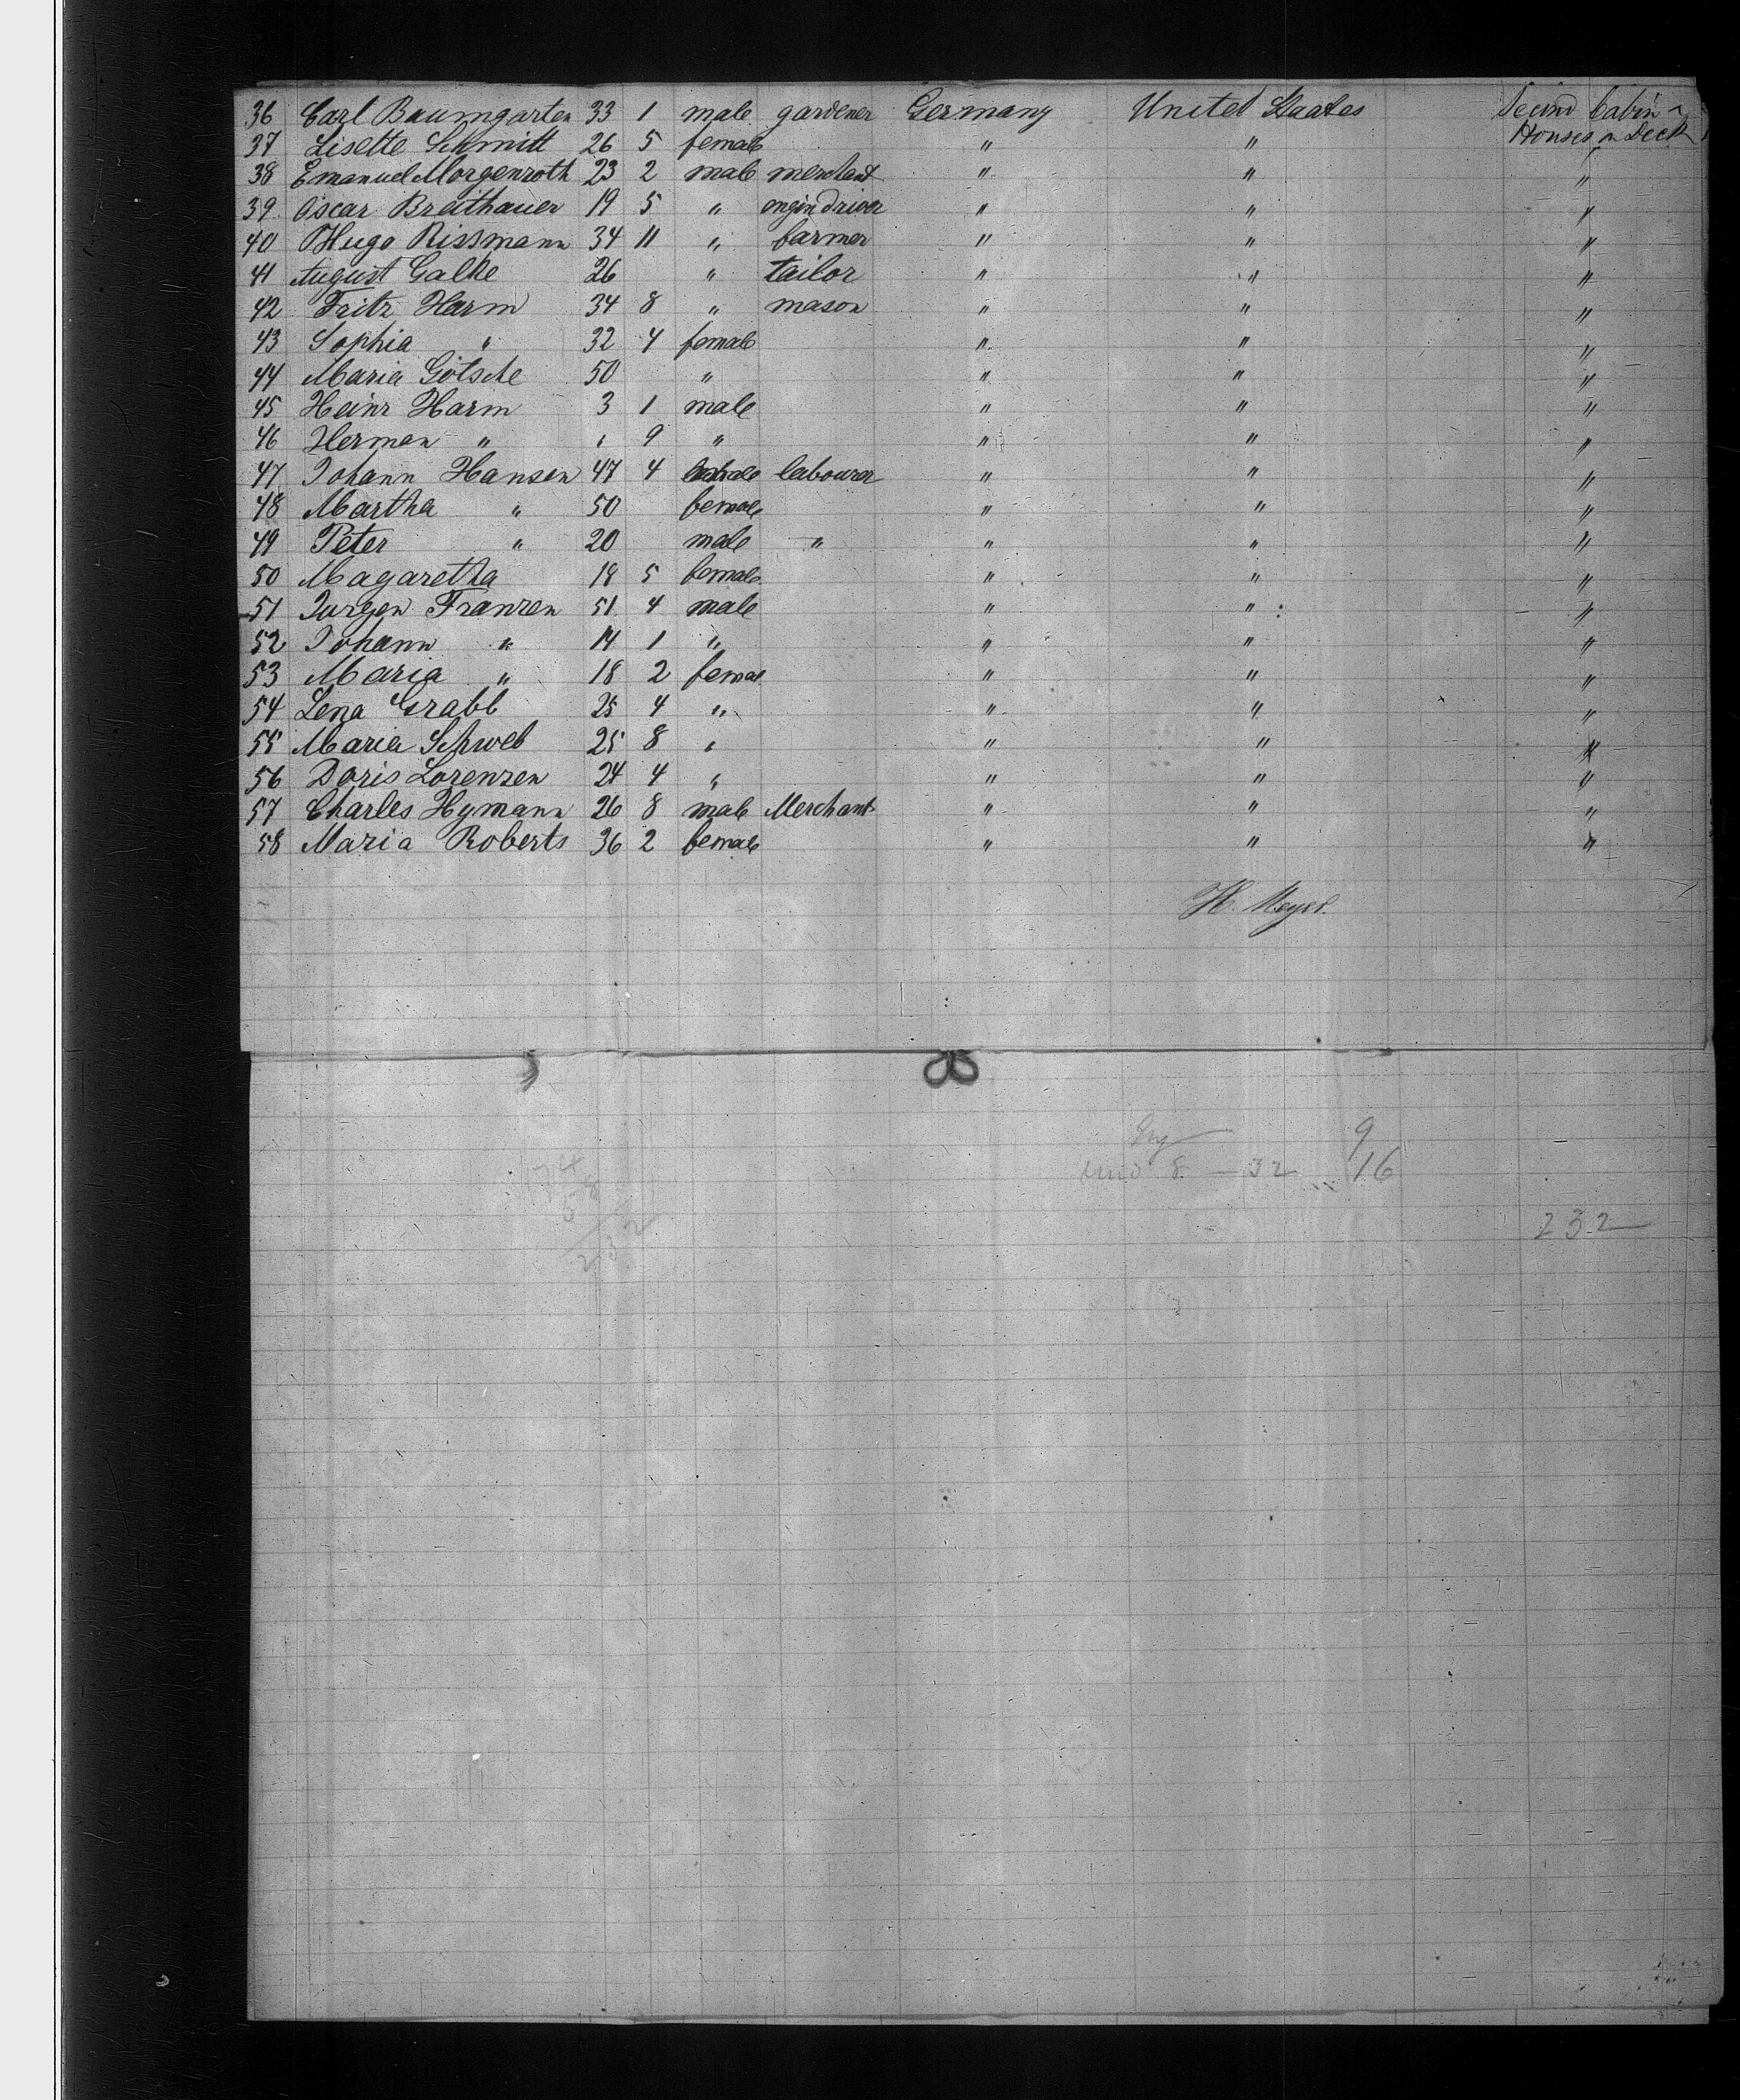 36 Carl Baumgarten 33 1 male gardener Germany United Staates Second Cabin
37 Lisette Schmitt 26 5 female " " Houses on Deck
38 Emanuel Morgenroth 23 2 male merchant " " "
39 Oscar Breithauer 19 5 " engin driver " " "
40 Hugo Rissmann 34 11 " farmer " " "
41 August Galke 26 " tailor " " "
42 Fritz Harm 34 8 " mason " " "
43 Sophia " 32 4 female " " "
44 Maria Götsche 50 " " " "
45 Heinr Harm 3 1 male " " "
46 Herman " " 9 " " " "
47 Johann Hansen 47 4 male labourer " " "
48 Martha " 50 female " " "
49 Peter " 20 male " " " "
50 Magaretha 18 5 female " " "
51 Jurgen Franzen 51 4 male " " "
52 Johann " 14 1 " " " "
53 Maria " 18 2 femal " " "
54 Lena Grabb 25 4 " " " "
55 Maria Schweb 25 8 " " " "
56 Doris Lorenzen 24 4 " " " "
57 Charles Hymann 26 8 male Merchant " " "
58 Maria Roberts 36 2 female " " "
H. Meyer.
9
174
8 — 32 " 16
58
232
232